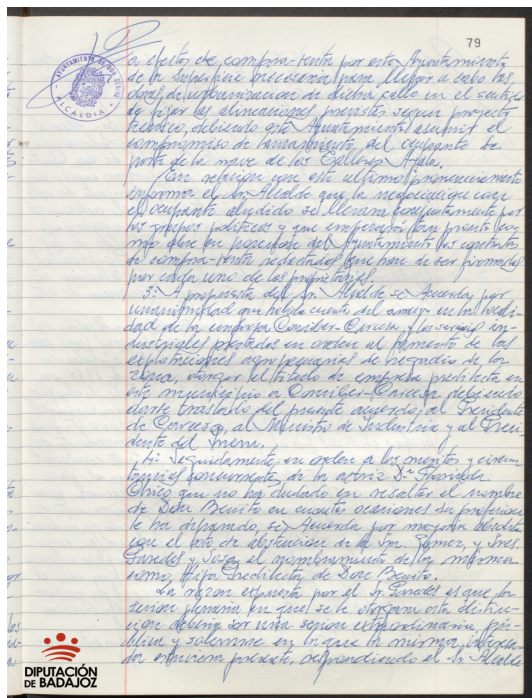 79
AYUNTAMIENTO DE DON BENITO
ALCALDIA
a efectos de compra-venta por este Ayuntamiento
de la superficie necesaria para llevar a cabo las
obras de urbanización de dicha calle en el sentido
de fijar las alineaciones previstas según proyecto
técnico, debiendo este Ayuntamiento asumir el
compromiso de lanzamiento del ocupante de
parte de la nave de los Talleres Ayala.
Con relación con este último pronunciamiento
informa el Sr. Alcalde que la negociación con
el ocupante aludido se llevará conjuntamente por
los grupos políticos y que empezará tan pronto co-
mo obre en poder del Ayuntamiento los contratos
de compra-venta redactados que han de ser firmados
por cada uno de los propietarios.
3: A propuesta del Sr. Alcalde, se Acuerda por
unanimidad que habida cuenta del en la locali-
dad de la empresa y los servicios in-
dustriales prestados en orden al fomento de las
explotaciones agropecuarias de regadío de la
zona, otorgar el título de empresa predilecta en
este municipio a debiendo
darse traslado del presente acuerdo, al Presidente
de al Ministro de Industria y al Presi-
dente del
4: Seguidamente, en orden a los méritos y circuns-
tancias concurrentes de la actriz Dª
Chico que no ha dudado en resaltar el nombre
de Don Benito en cuantas ocasiones su profesión
le ha deparado, se Acuerda por mayoría absoluta
con el voto de abstención de la Sra. Gómez, y Sres.
Paredes y Sosa, el nombramiento de la misma
como Hija Predilecta de Don Benito.
La razón expuesta por el Sr. Paredes es que la
sesión plenaria en que se le otorgara esta distin-
ción debería ser una sesión extraordinaria, pú-
blica y solemne en la que la misma interesa-
da estuviera presente, respondiendo el Sr. Alcalde
DIPUTACIÓN
DE BADAJOZ